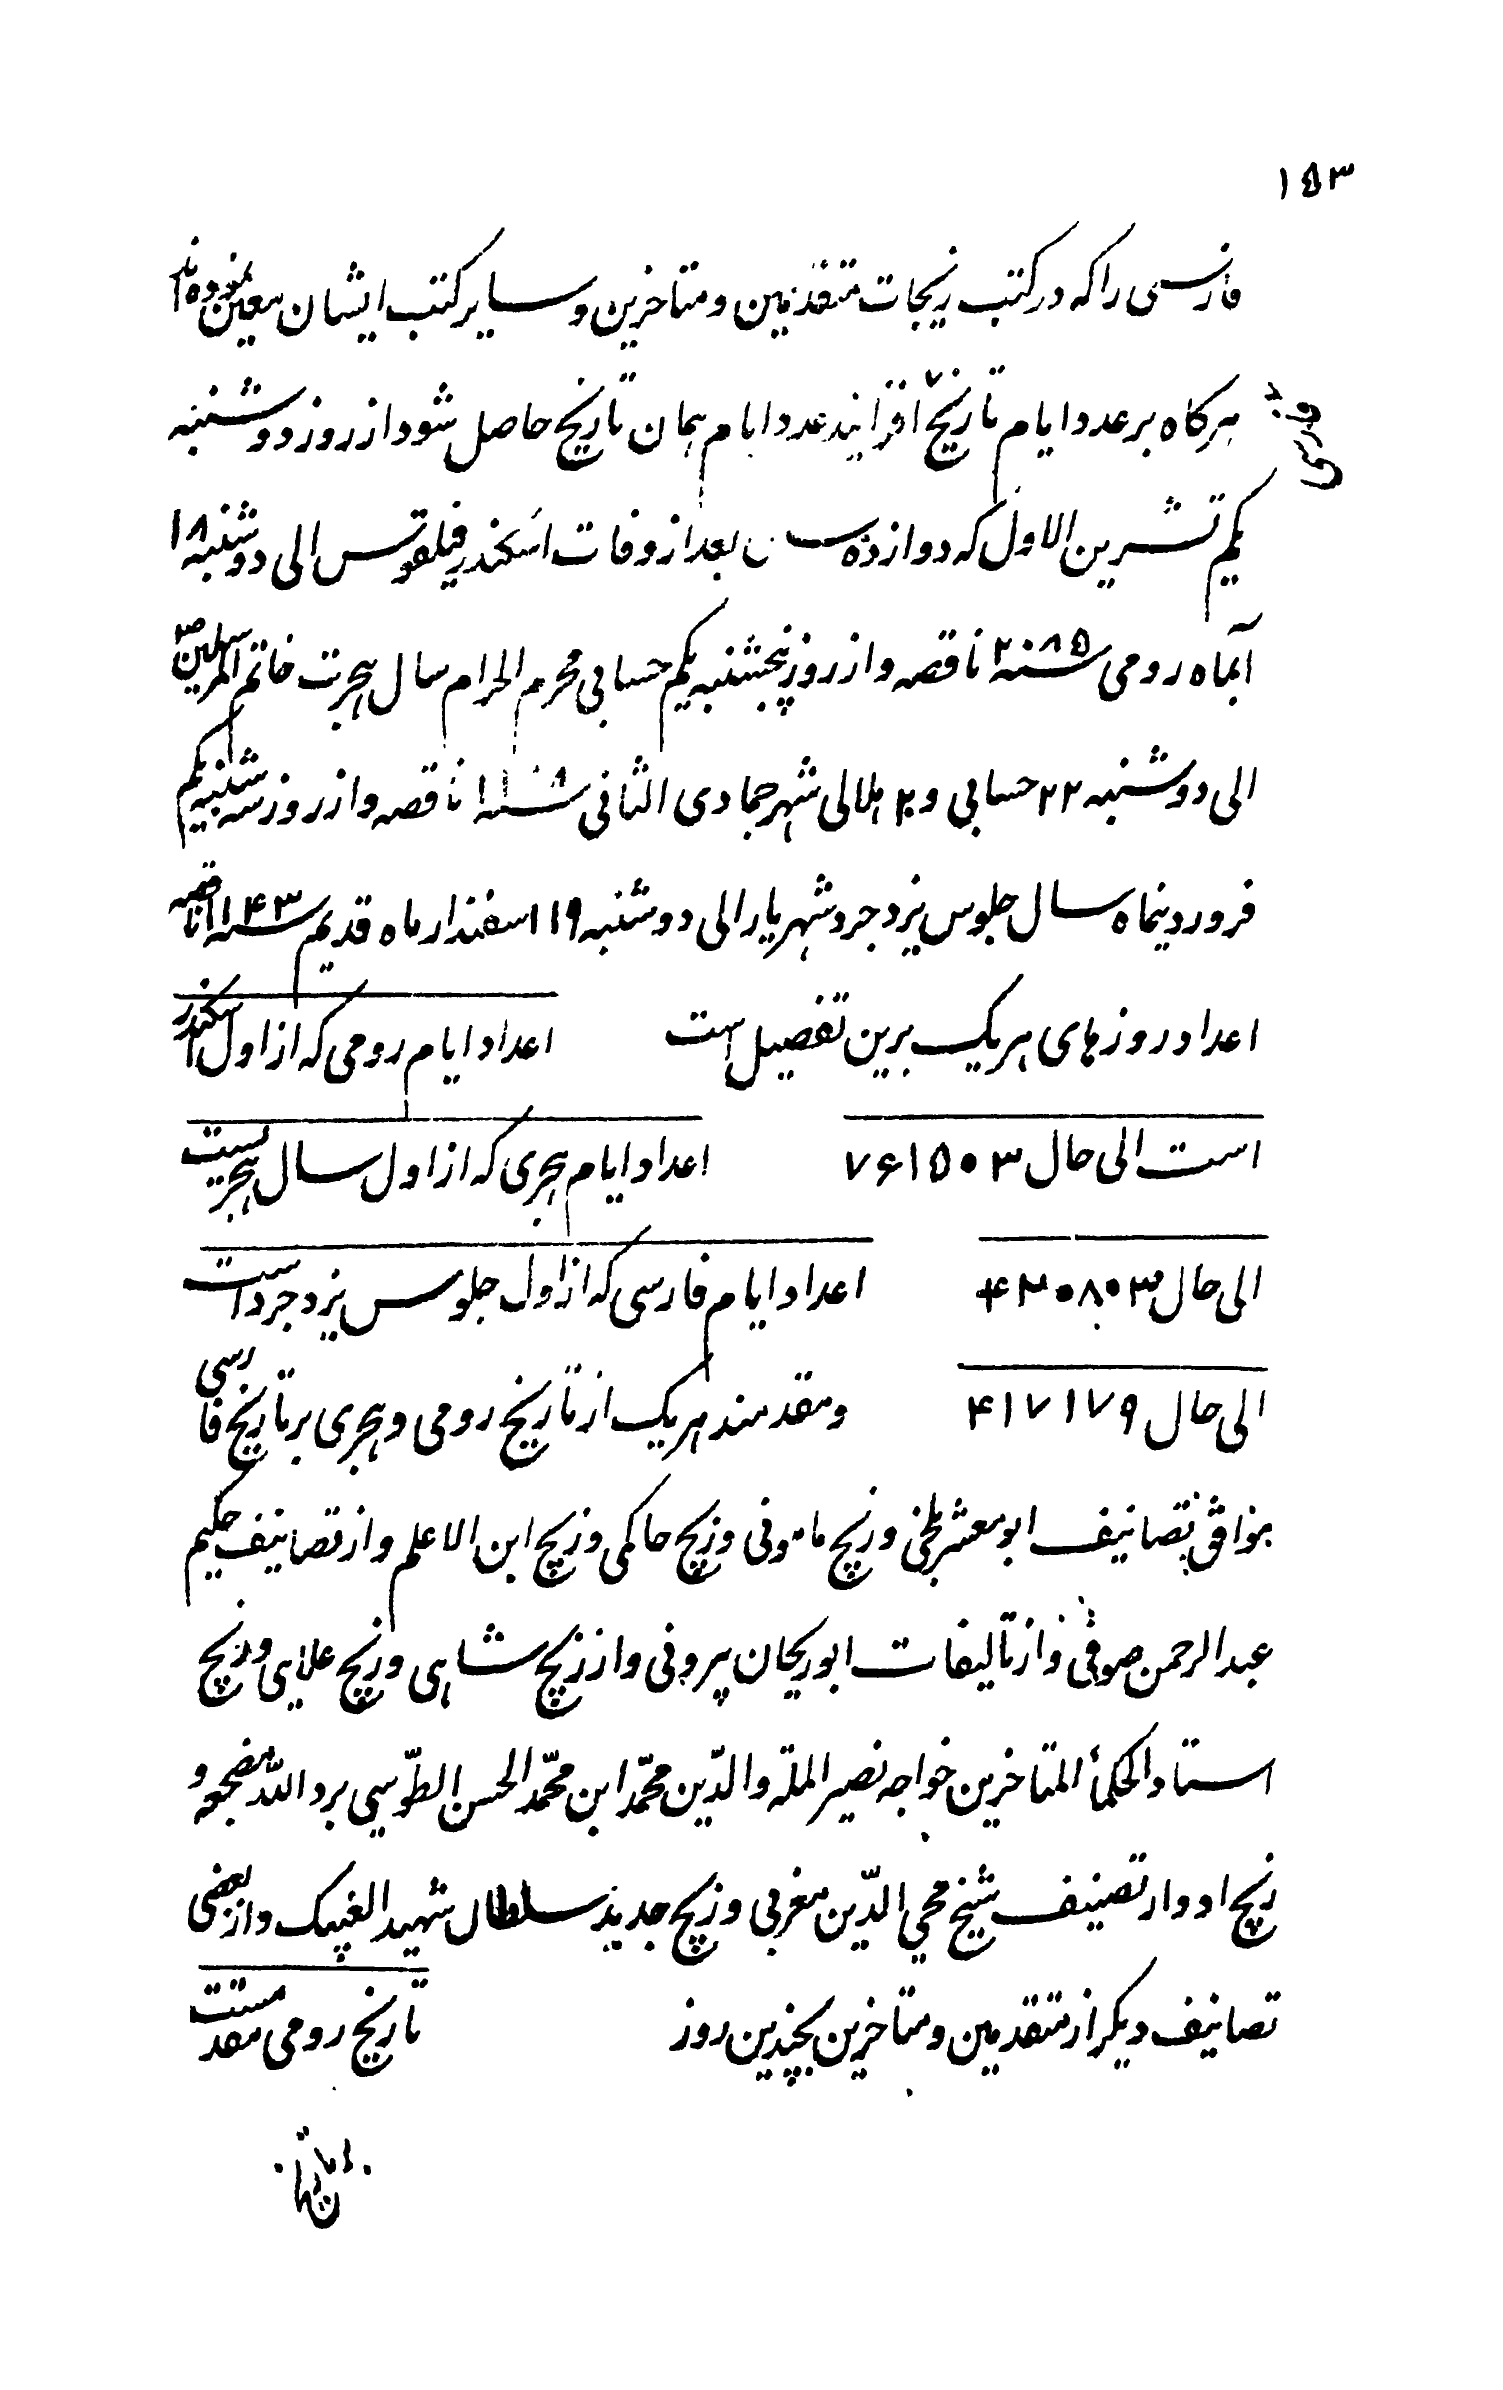 ۱۵۳
فارسی را که در کتب زیجات متقدمین و متاخرین و سایر کتب ایشان معین نموده‌اند
هرکاه بر عدد ایام تاریخ افزایند عدد ایام همان تاریخ حاصل شود از روز دوشنبه
فارسی
یکم تشرین الاول که دوازده سن بعد از وفات اسکندر فیلقوس الی دوشنبه ۱۸
آبماه رومی سنه ۲۰۸۵ ناقصه و از روز پنجشنبه یکم حسابی محرم الحرام سال هجرت خاتم المرسلین ص
الی دوشنبه ۲۲ حسابی و ۲۰ هلالی شهر جمادی الثانی سنه ۱۱۸۸ ناقصه و از روز سه شنبه یکم
فروردینماه سال جلوس یزدجرد شهریار الی دوشنبه ۱۱۹ اسفندارماه قدیم سنه ۱۱۴۳ ناقصه
اعداد روزهای هر یک برین تفصیل است اعداد ایام رومی که از اول اسکندر
است الی حال ۷۶۱۵۰۳ اعداد ایام هجری که از اول سال هجریست
الی حال ۴۲۰۸۰۳ اعداد ایام فارسی که از اول جلوس یزدجرد است
الی حال ۴۱۷۱۷۹ و مقدمند هر یک از تاریخ رومی و هجری بر تاریخ فارسی
بموافق تصانیف ابومعشر بلخی و زیج مامونی و زیج حاکمی و زیج ابن الاعلم و از تصانیف حکیم
عبدالرحمن صوفی و از تالیفات ابوریحان بیرونی و از زیج شاهی و زیج علایی و زیج
استاد الحکمأ المتاخرین خواجه نصیر الملة والدّین محمّد ابن محمّد الحسن الطّوسی برد اللّه مضجعه و
زیج ادوار تصنیف شیخ محی الدّین مغربی و زیج جدید سلطان شهید الغبیک و از بعضی
تصانیف دیکر از متقدمین و متاخرین بچندین روز تاریخ رومی مقدمست